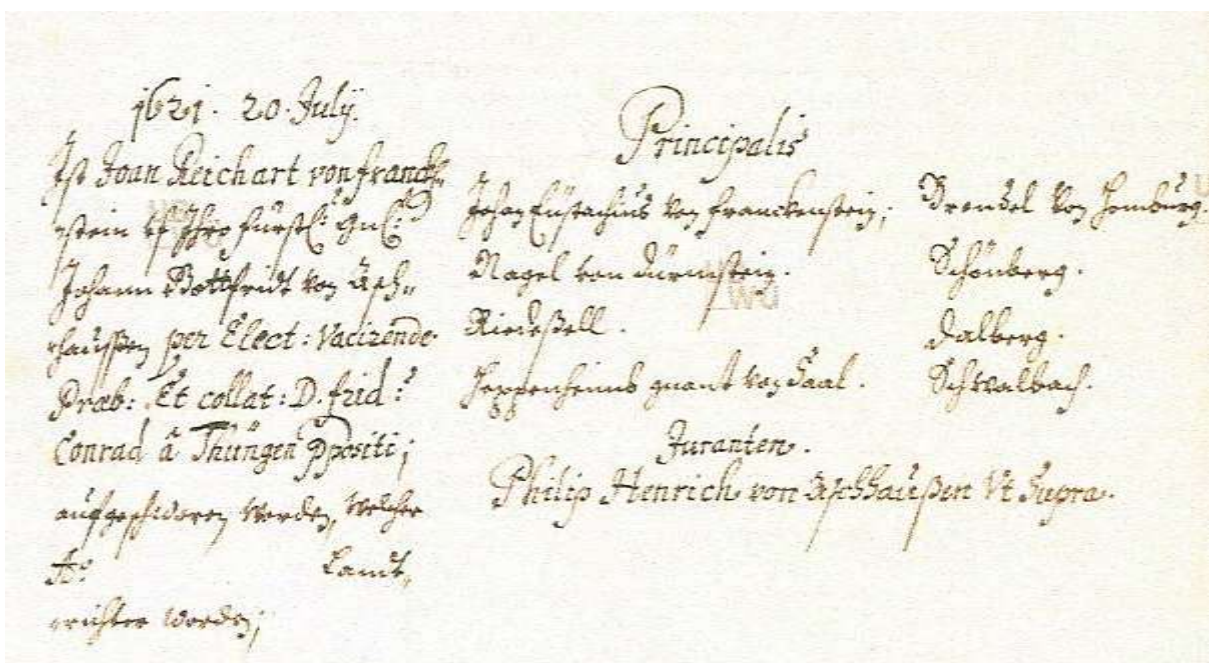 1621. 20. Julÿ.
Ist Joan Reichart von franck„
„stein uf Ihro fürstl: Gnl:
Johann Gottfridt von Asch„
„haussen per Elect: Vacizende
Præb: Et collat: D. frid:
Conrad â Thüngen Ppositi;
aufgeschworen worden, welcher
Aº Landt„
„richter worden;
Principalis
Johan Eustachius von Franckenstein;
Nagel von dürmstein.
Riedeßell.
Heppenheimb genant von Saal.
Brendel von Homburg.
Schönberg.
Dalberg.
Schwalbach.
Juranten.
Philip Henrich von Aschhaußen Vt Supra.